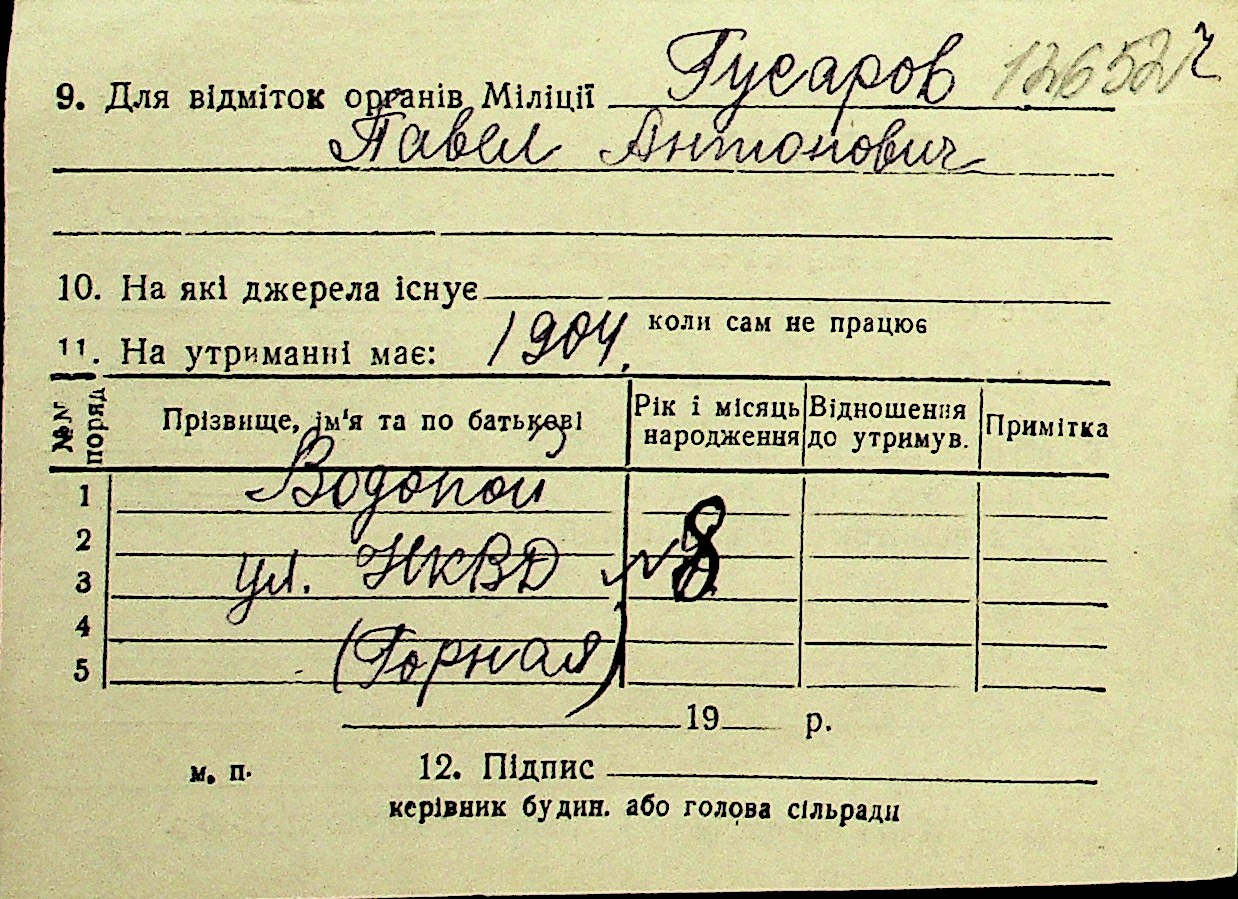 9. Для відміток органів Міліції Гусаров 12652 ч
Павел Антонович
10. На які джерела існує
коли сам не працює
11. На утриманні має: 1904.
№№ поряд Прізвище, ім'я та по батькові Рік і місяць народження Відношення до утримув. Примітка
1 Водопой
2
3 ул. НКВД №8
4
5 (Горная)
19 р.
м. п. 12. Підпис
керівник будин. або голова сільради